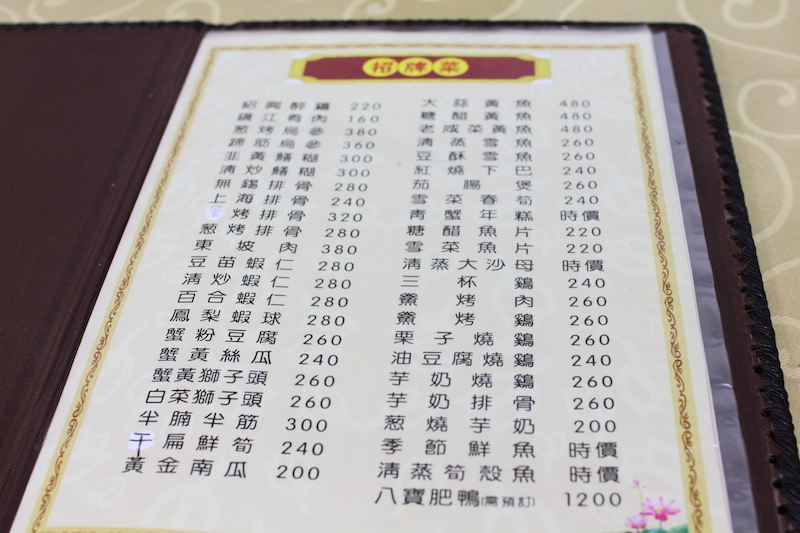 招牌菜
紹興醉雞 220
鎮江肴肉 160
蔥烤烏參 380
蹄筋烏參 360
韮黃鱔糊 300
清炒鱔糊 300
無錫排骨 280
上海排骨 240
烤排骨 320
蔥烤排骨 280
東坡肉 380
豆苗蝦仁 280
清炒蝦仁 280
百合蝦仁 280
鳳梨蝦球 280
蟹粉豆腐 260
蟹黃絲瓜 240
蟹黃獅子頭 260
白菜獅子頭 260
半腩半筋 300
干扁鮮筍 240
黃金南瓜 200
大蒜黃魚 480
糖醋黃魚 480
老咸菜黃魚 480
清蒸雪魚 260
豆酥雪魚 260
紅燒下巴 240
茄腸煲 260
雪菜春筍 240
青蟹年糕 時價
糖醋魚片 220
雪菜魚片 220
清蒸大沙母 時價
三杯鷄 240
鯗烤肉 260
鯗烤鷄 260
栗子燒鷄 260
油豆腐燒鷄 240
芋奶燒鷄 260
芋奶排骨 260
蔥燒芋奶 200
季節鮮魚 時價
清蒸筍殼魚 時價
八寶肥鴨(需預訂) 1200